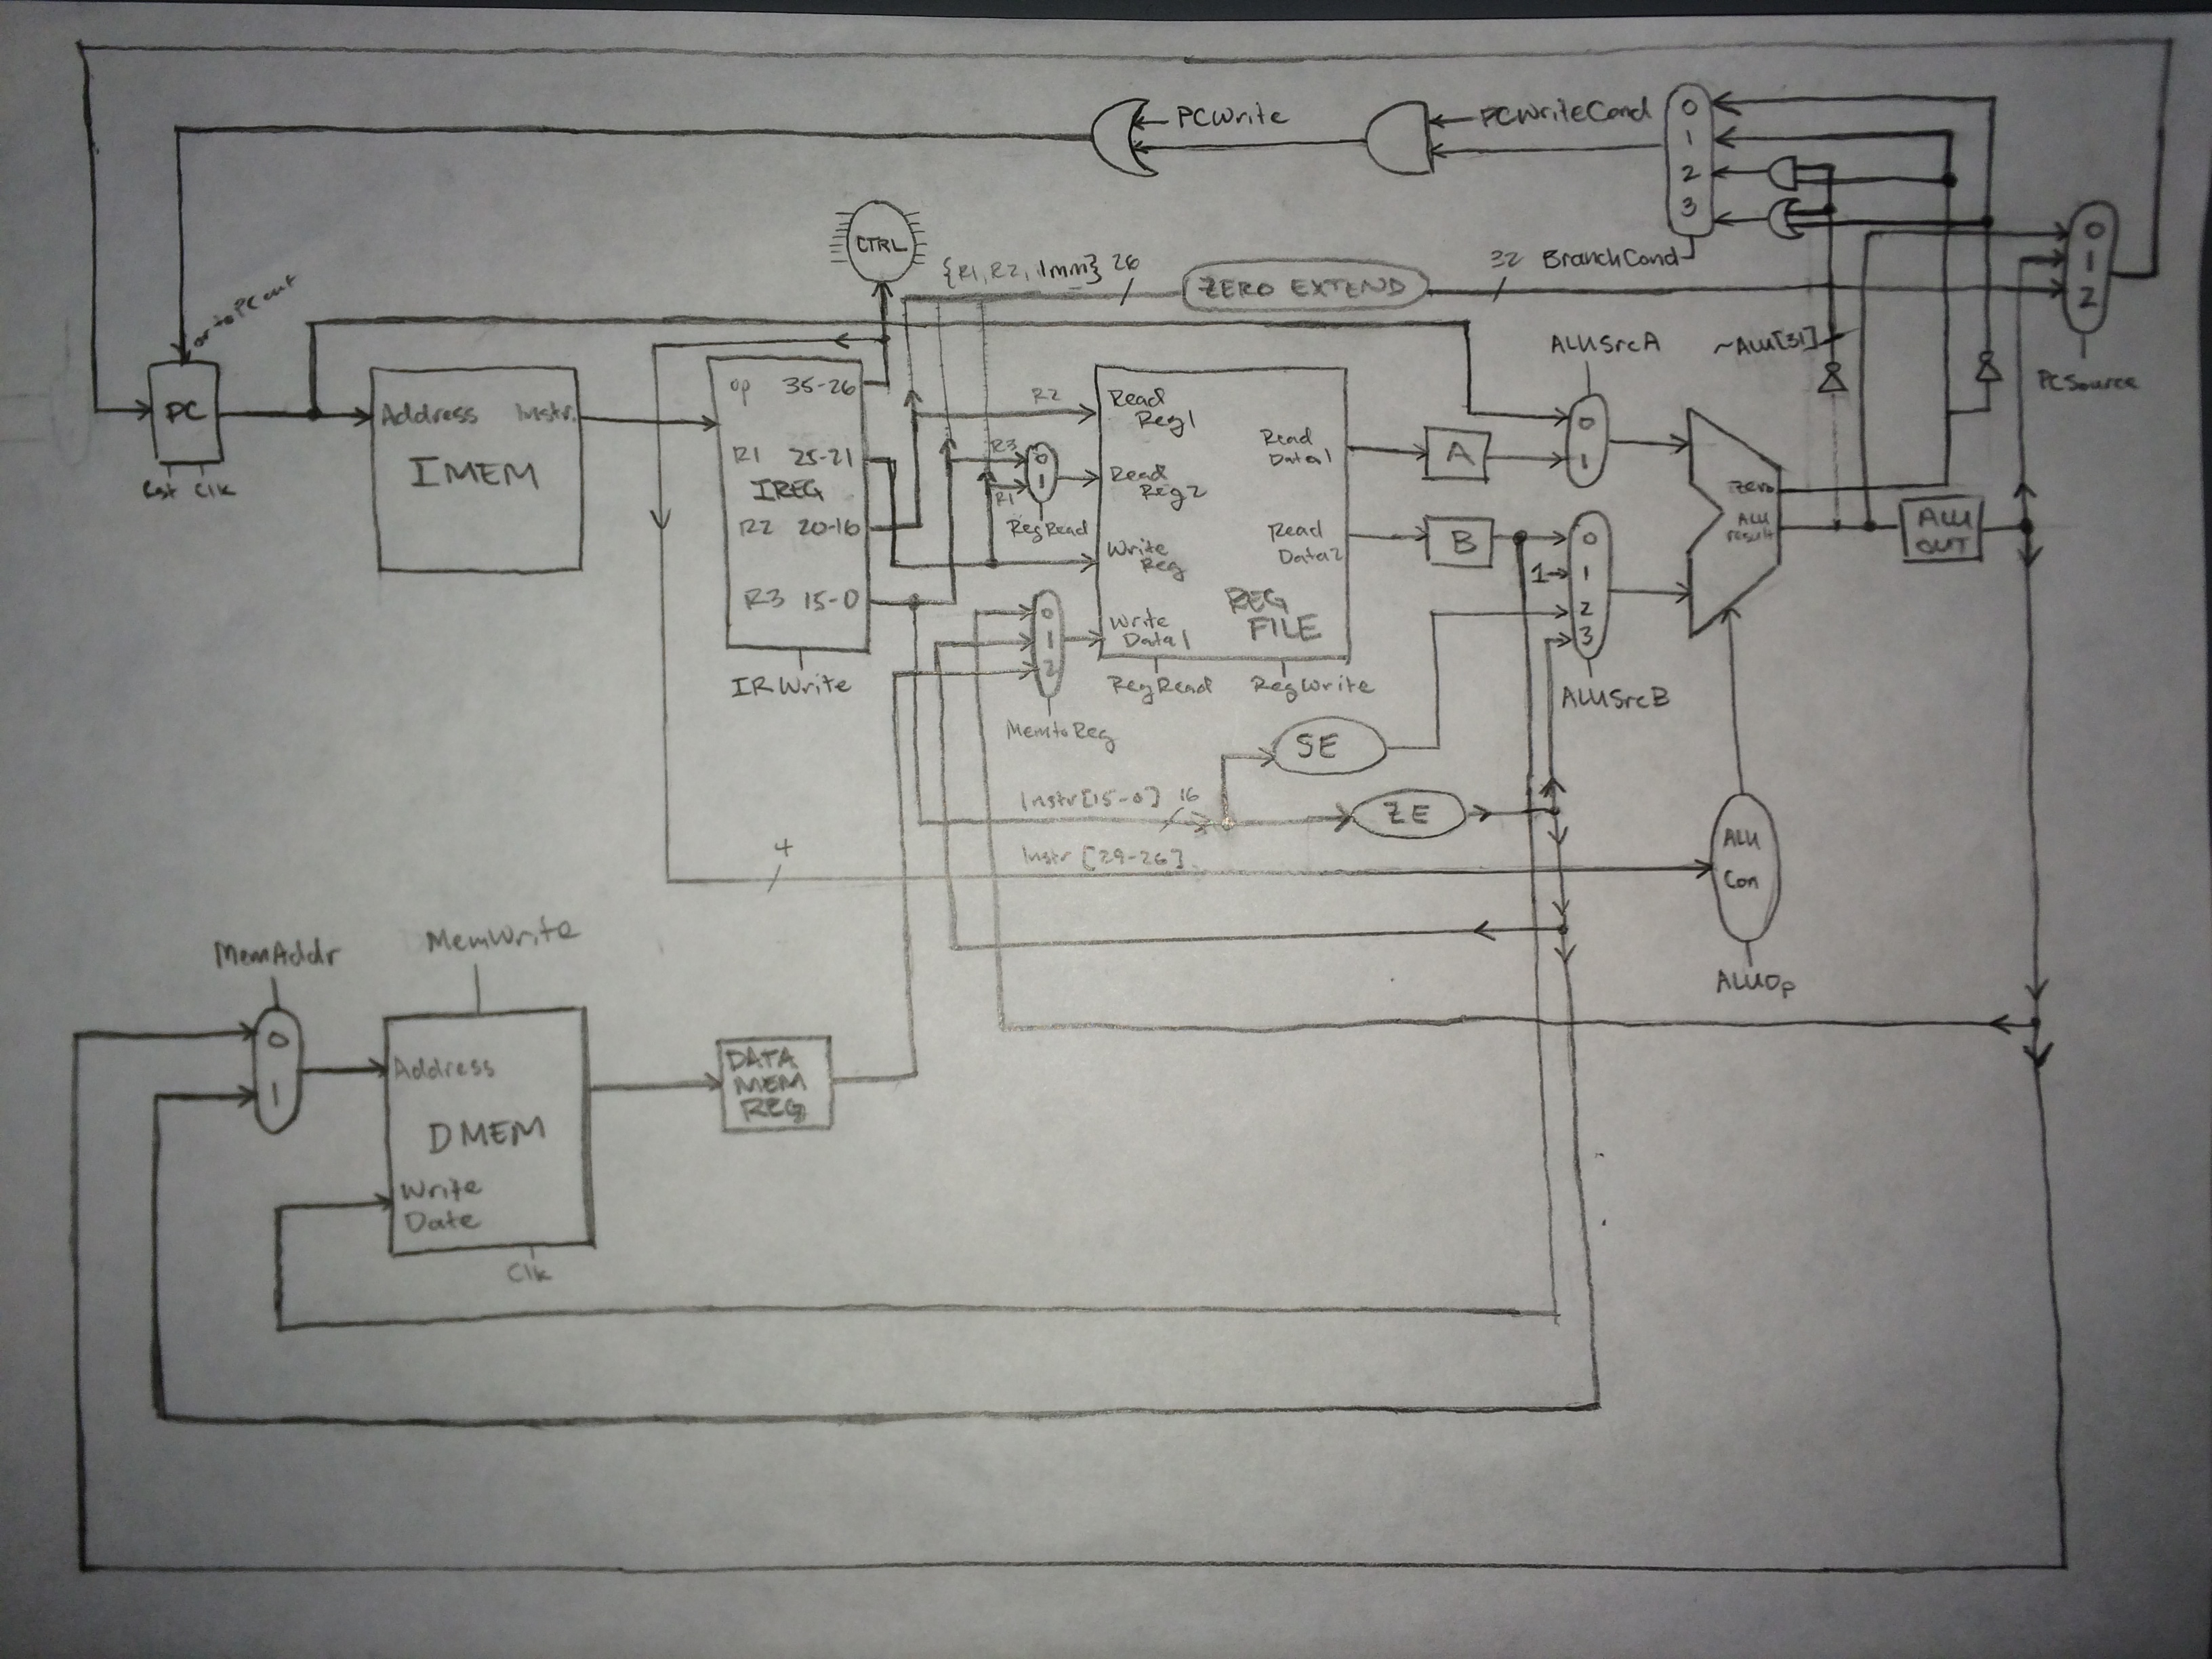 PCWrite
PCWriteCond
0
1
2
3
BranchCond
CTRL
{R1, R2, Imm} 26
ZERO EXTEND
32
0
1
2
PCSource
ortoPCout
PC
Rst Clk
Address Instr.
IMEM
op 35-26
R1 25-21
IREG
R2 20-16
R3 15-0
IRWrite
R2
R3
R1
0
1
RegRead
Read
Reg1
Read
Reg2
Write
Reg
Write
Data1
Read
Data1
Read
Data2
REG
FILE
RegRead
RegWrite
0
1
2
MemtoReg
A
B
ALUSrcA
0
1
1
0
1
2
3
ALUSrcB
~ALU[31]
Zero
ALU
result
ALU
OUT
SE
Instr[15-0] 16
ZE
4
Instr [29-26]
ALU
Con
ALUOp
MemAddr
MemWrite
0
1
Address
DMEM
Write
Date
Clk
DATA
MEM
REG